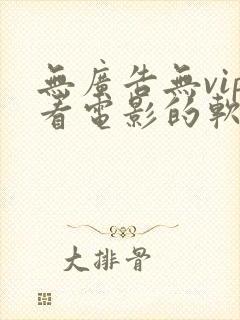 無廣告無vip
看電影的軟
大排骨